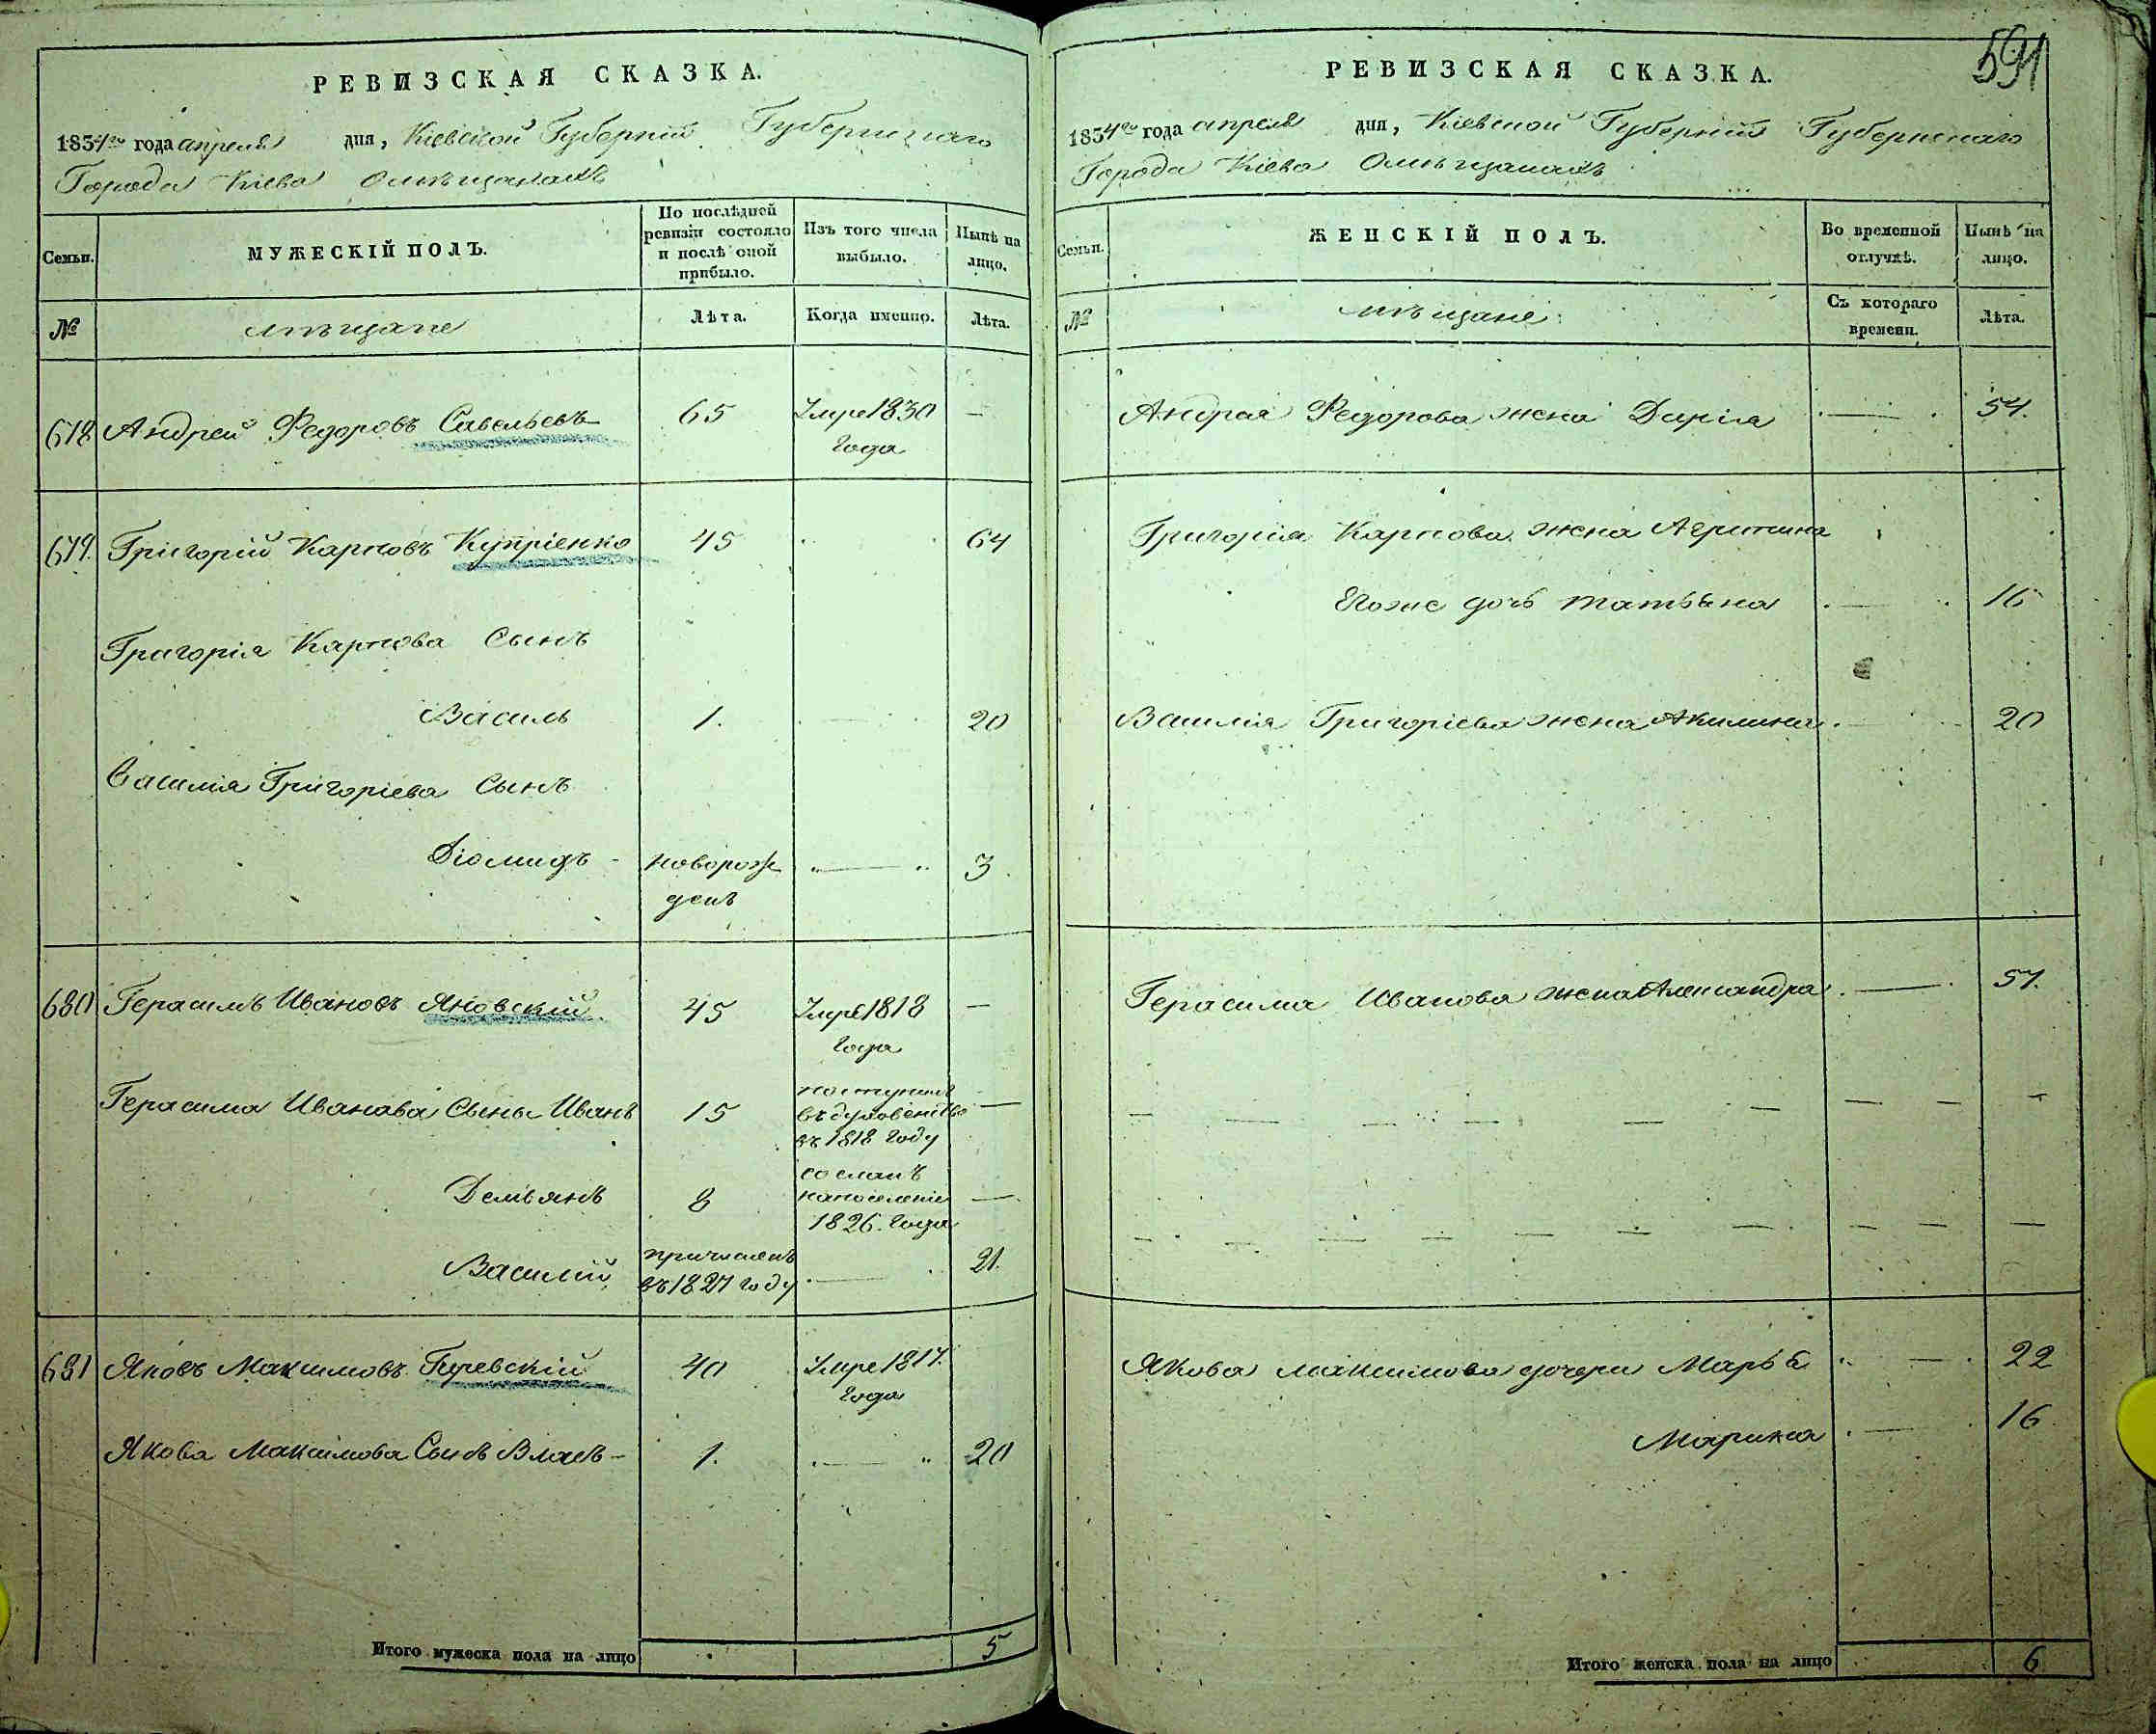 РЕВИЗСКАЯ СКАЗКА.
1834го года апреля дня, Кіевской Губерніи Губернскаго
Города Кіева Омѣщанахъ
Семьи.
МУЖЕСКІЙ ПОЛЪ.
По послѣдней
ревизіи состояло
и послѣ оной
прибыло.
Изъ того числа
выбыло.
Нынѣ на
лицо.
№
мѣщане
Лѣта.
Когда именно.
Лѣта.
678 Андрей Федоровъ Савельевъ 65 Умре 1830 —
года
679. Григорій Карповъ Купріенко 45 64
Григорія Карпова Сынъ
Василь 1. 20
Василія Григоріева Сынъ
Діомидъ новорож 3
денъ
680 Герасимъ Ивановъ Яновскій 45 Умре 1818 —
года
Герасима Иванова Сыны Иванъ 15 поступилъ
въ духовенство —
въ 1818 году
Демьянъ 8 сосланъ
на поселеніе —
1826. года
Василій причисленъ 21.
въ 1827 году
681 Яковъ Максимовъ Гуревскій 40 Умре 1817.
года
Якова Максимова Сынъ Власъ 1. 20
Итого мужеска пола на лицо 5
591
РЕВИЗСКАЯ СКАЗКА.
1834го года апреля дня, Кіевской Губерніи Губернскаго
Города Кіева Омѣщанахъ
Семьи.
ЖЕНСКІЙ ПОЛЪ.
Во временной
отлучкѣ.
Нынѣ на
лицо.
№
мѣщане
Съ котораго
времени.
Лѣта.
Андрея Федорова жена Дарія 54.
Григорія Карпова жена Агрипина
Егоже дочь татьяна 16
Василія Григоріева жена Акилина 20
Герасима Иванова жена Александра 57.
Якова максимова дочери Марья 22
Марина 16
Итого женска пола на лицо 6